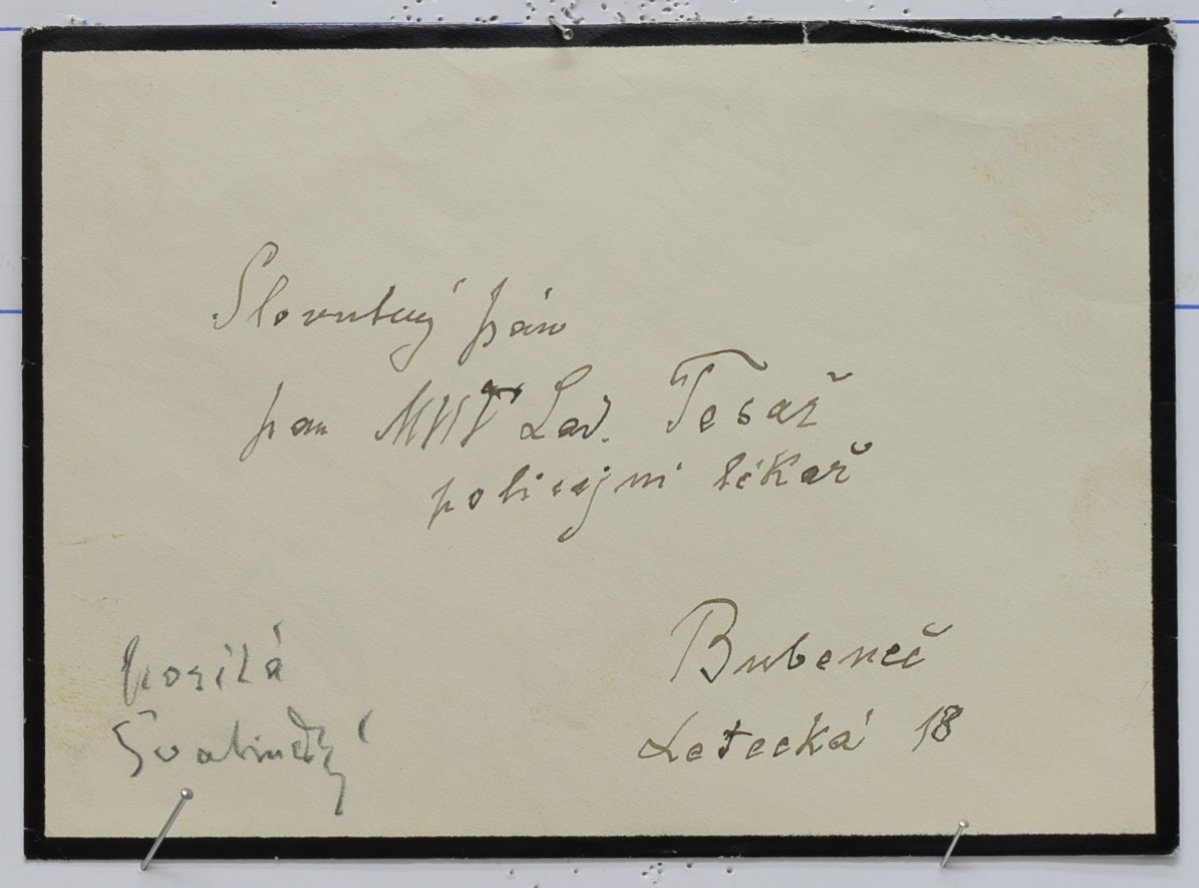 Slovutný pán
pan MUDr Lad. Tesař
policejní lékař
Bubeneč
Letecká 18
posílá
Švabinský